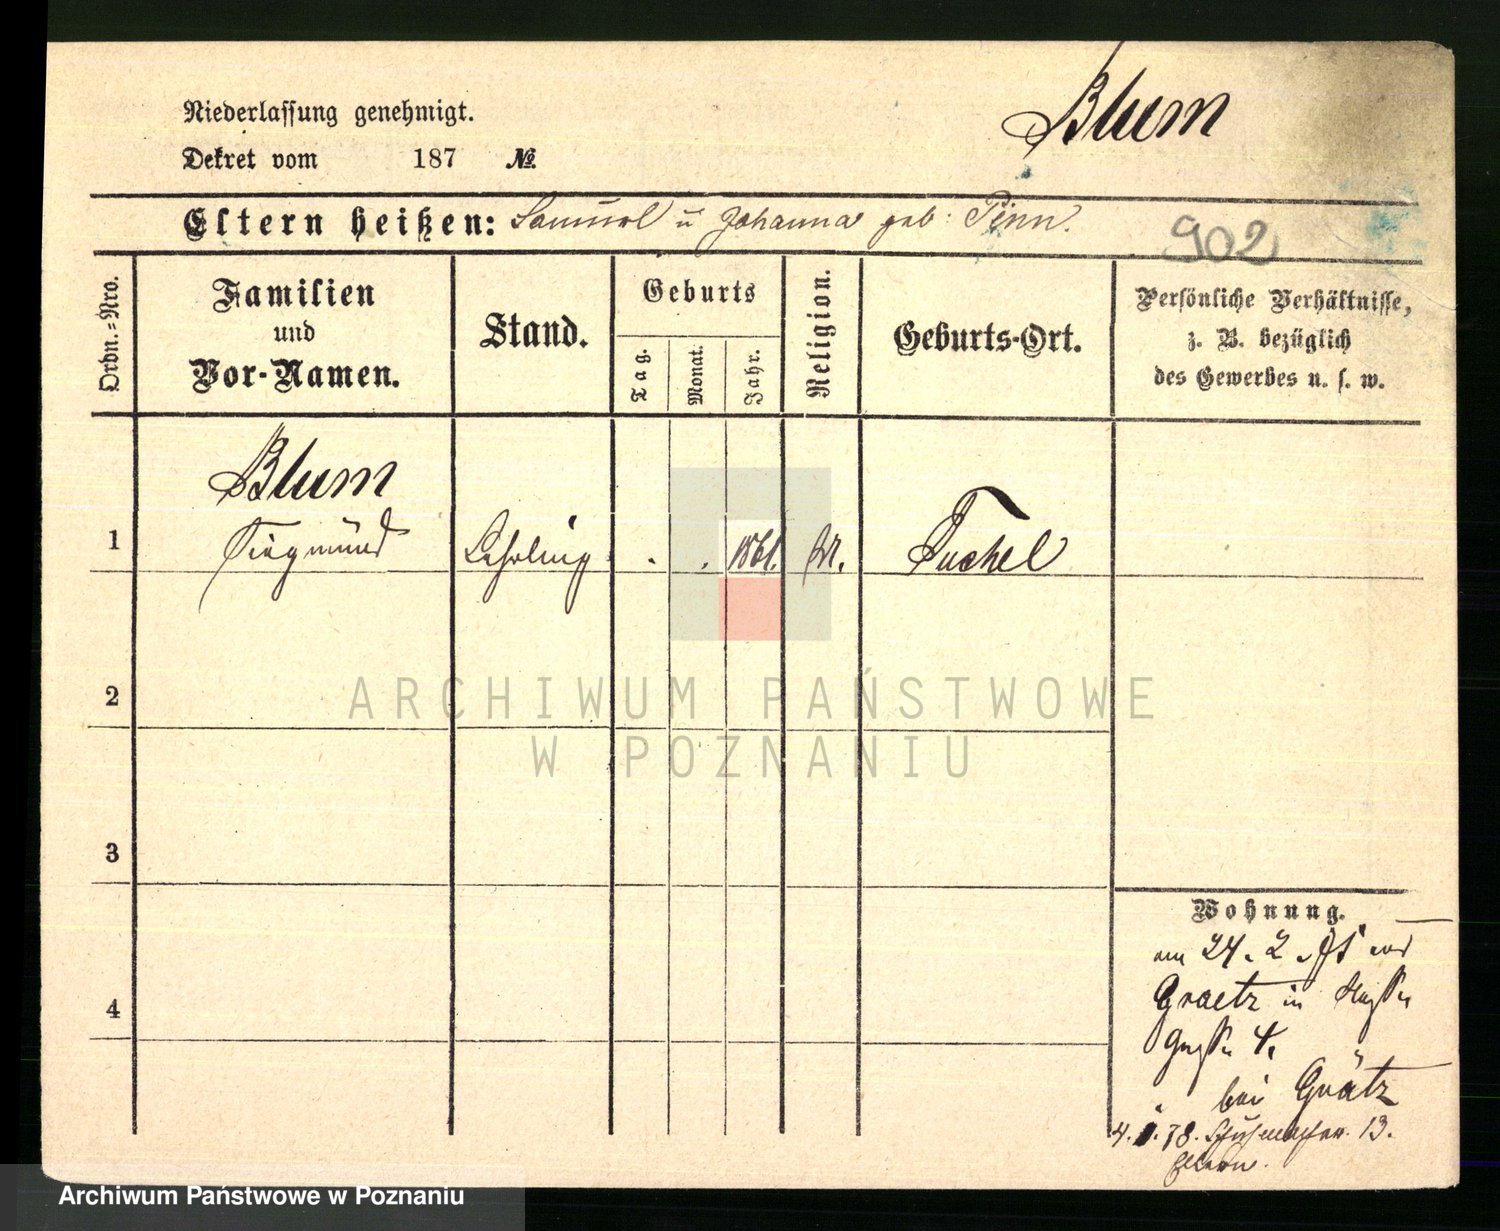 Blum
Niederlassung genehmigt.
Dekret vom 187 №
Eltern heißen: Samuel u Johanna geb: Pinn.
902
Ordn.=Nro.
Familien
und
Vor-Namen.
Stand.
Geburts
Tag.
Monat.
Jahr.
Religion.
Geburts-Ort.
Persönliche Verhältnisse,
z. B. bezüglich
des Gewerbes u. s. w.
Blum
1 Siegmund Lehrling . . 1861. M. Tuchel
2
3
4
ARCHIWUM PAŃSTWOWE
W POZNANIU
Wohnung.
am 24. 2.
Graetz in
4.
bei Grätz
4. 78. Schuhmacher 13.
Eltern.
Archiwum Państwowe w Poznaniu